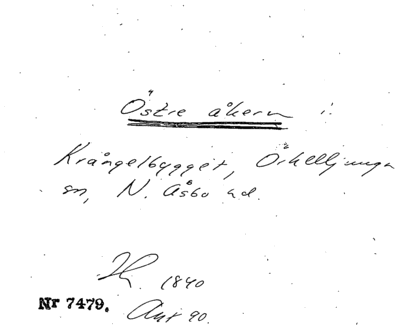 Östre åkern i
Krångelbygget, Örkelljunga
sn, N. Åsbo hd.
1840
Nr 7479.
Ant 90.